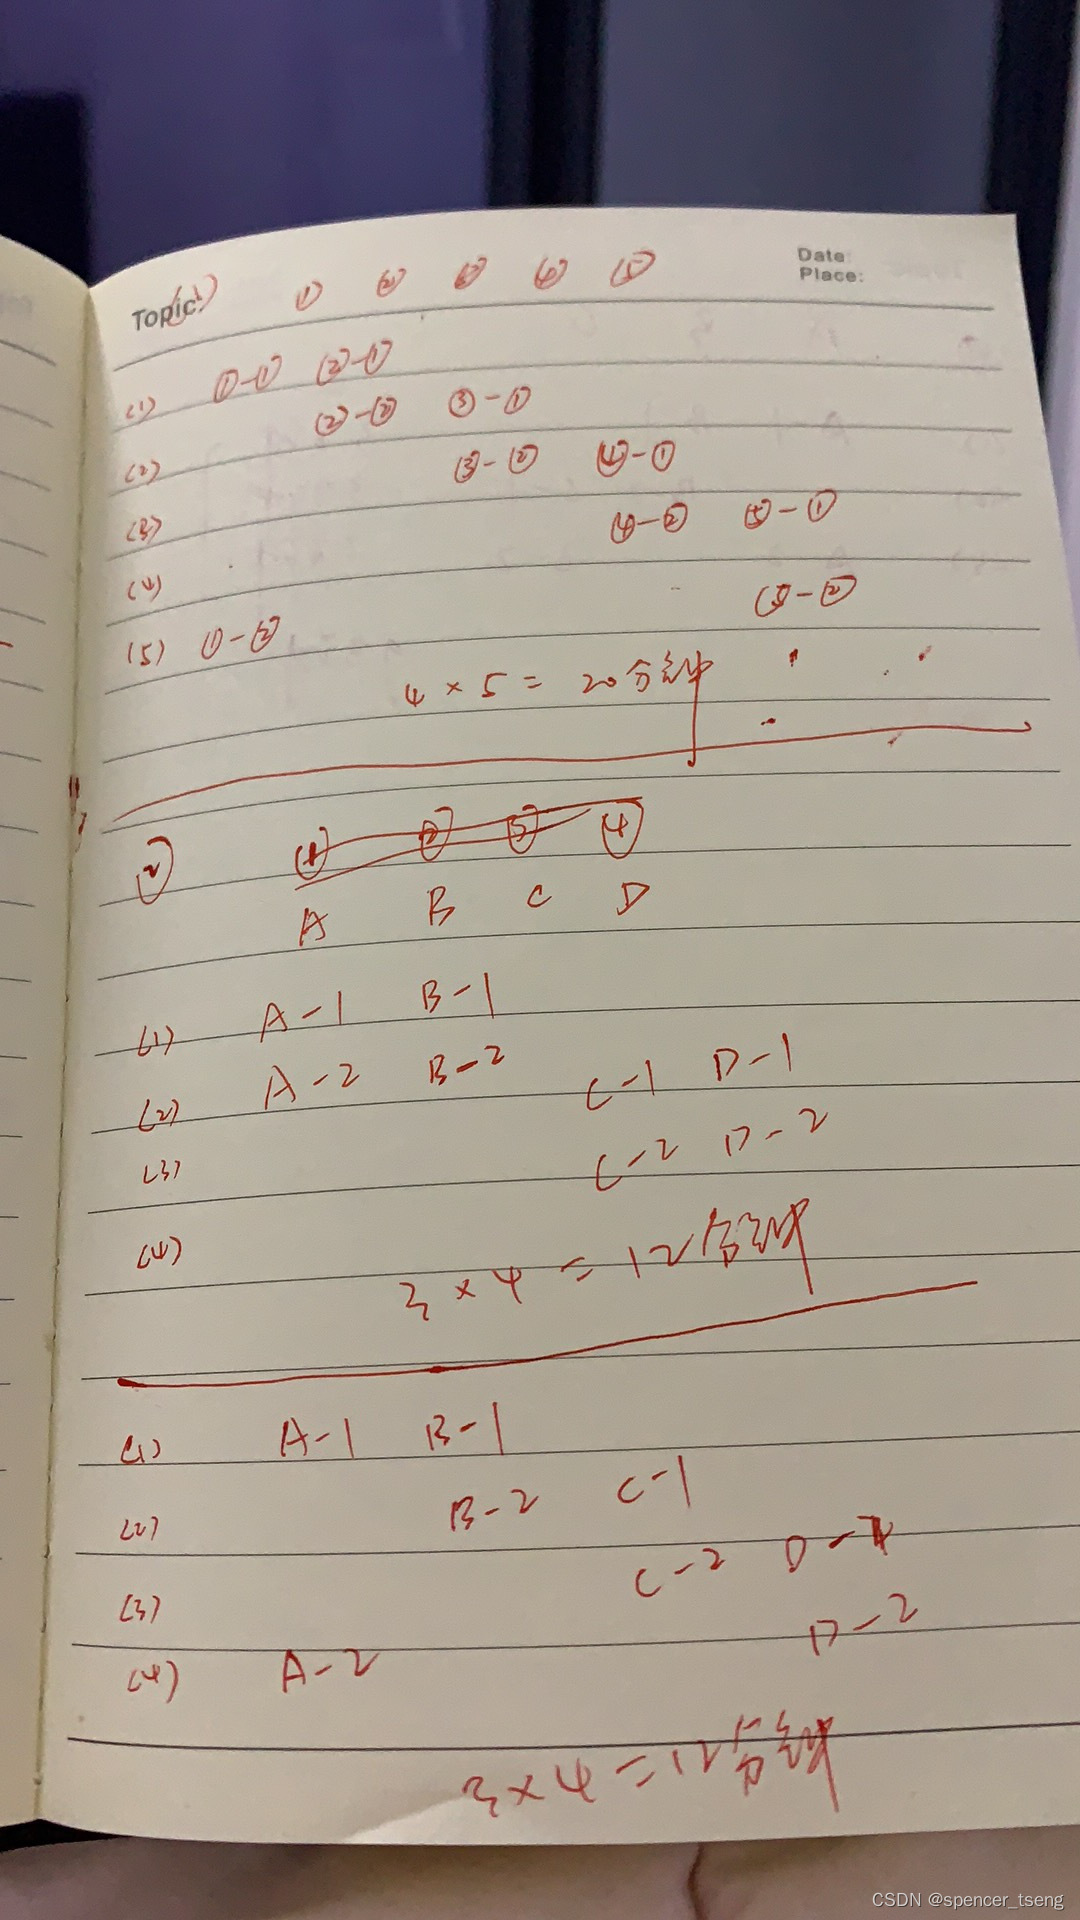 Topic: (1) ① ② ③ ④ ⑤
Date:
Place:
(1) ①-① ②-①
(2) ②-② ③-①
(3) ③-② ④-①
(4) ④-② ⑤-①
(5) ①-② ⑤-②
4 × 5 = 20分钟
② ① ② ③ ④
A B C D
(1) A-1 B-1
(2) A-2 B-2
(3) C-1 D-1
(4) C-2 D-2
3 × 4 = 12分钟
(1) A-1 B-1
(2) B-2 C-1
(3) C-2 D-1
(4) A-2 D-2
3 × 4 = 12分钟
CSDN @spencer_tseng